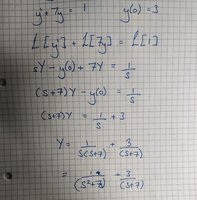 y' + 7y = 1 y(0) = 3
L[y'] + L[7y] = L[1]
sY - y(0) + 7Y = 1/s
(s+7)Y - y(0) = 1/s
(s+7)Y = 1/s + 3
Y = 1/(s(s+7)) + 3/(s+7)
= /(s²+7) + 3/(s+7)